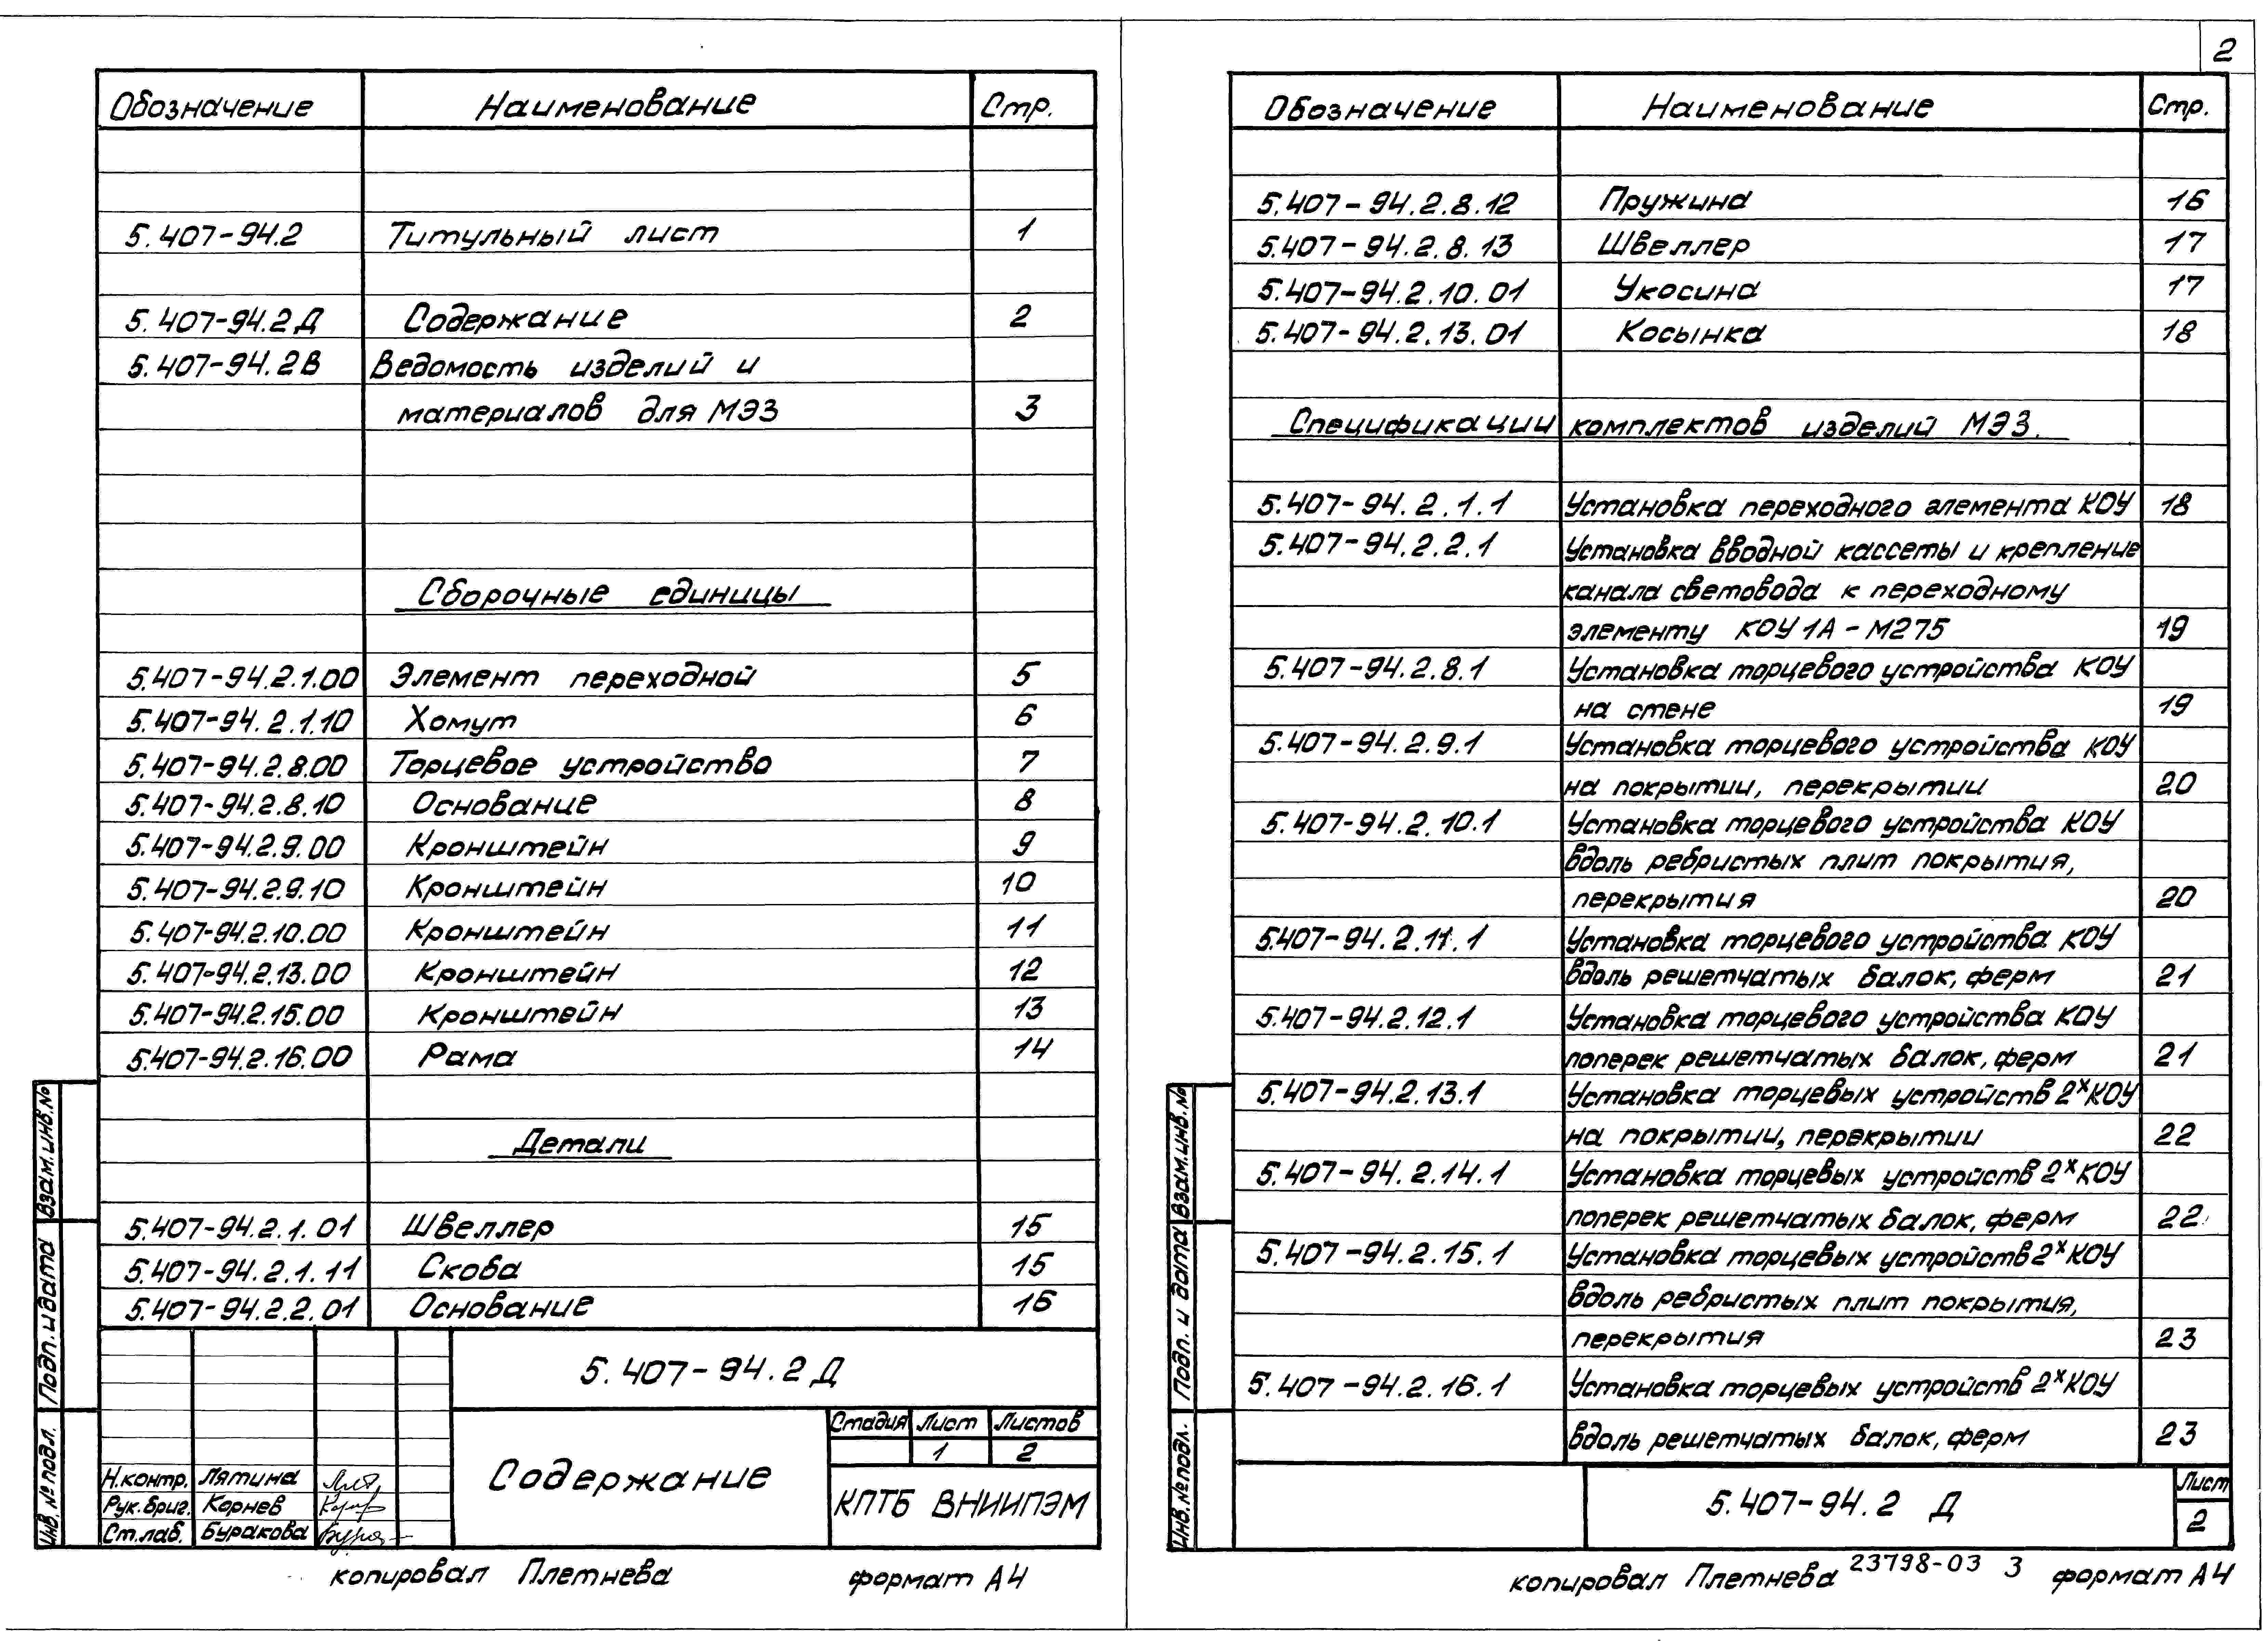 Обозначение Наименование Стр.
5.407-94.2 Титульный лист 1
5.407-94.2Д Содержание 2
5.407-94.2В Ведомость изделий и
материалов для МЭЗ 3
Сборочные единицы
5.407-94.2.1.00 Элемент переходной 5
5.407-94.2.1.10 Хомут 6
5.407-94.2.8.00 Торцевое устройство 7
5.407-94.2.8.10 Основание 8
5.407-94.2.9.00 Кронштейн 9
5.407-94.2.9.10 Кронштейн 10
5.407-94.2.10.00 Кронштейн 11
5.407-94.2.13.00 Кронштейн 12
5.407-94.2.15.00 Кронштейн 13
5.407-94.2.16.00 Рама 14
Детали
5.407-94.2.1.01 Швеллер 15
5.407-94.2.1.11 Скоба 15
5.407-94.2.2.01 Основание 16
5.407-94.2Д
Содержание
Стадия Лист Листов
1 2
КПТБ ВНИИПЭМ
Н.контр. Лятина
Рук.бриг. Корнев
Ст.лаб. Буракова
Взам.инв.№
Подп. и дата
Инв.№подл.
копировал Плетнева формат А4
2
Обозначение Наименование Стр.
5.407-94.2.8.12 Пружина 16
5.407-94.2.8.13 Швеллер 17
5.407-94.2.10.01 Укосина 17
5.407-94.2.13.01 Косынка 18
Спецификации комплектов изделий МЭЗ.
5.407-94.2.1.1 Установка переходного элемента КОУ 18
5.407-94.2.2.1 Установка вводной кассеты и крепление
канала световода к переходному
элементу КОУ1А-М275 19
5.407-94.2.8.1 Установка торцевого устройства КОУ
на стене 19
5.407-94.2.9.1 Установка торцевого устройства КОУ
на покрытии, перекрытии 20
5.407-94.2.10.1 Установка торцевого устройства КОУ
вдоль ребристых плит покрытия,
перекрытия 20
5.407-94.2.11.1 Установка торцевого устройства КОУ
вдоль решетчатых балок, ферм 21
5.407-94.2.12.1 Установка торцевого устройства КОУ
поперек решетчатых балок, ферм 21
5.407-94.2.13.1 Установка торцевых устройств 2ˣКОУ
на покрытии, перекрытии 22
5.407-94.2.14.1 Установка торцевых устройств 2ˣКОУ
поперек решетчатых балок, ферм 22
5.407-94.2.15.1 Установка торцевых устройств 2ˣКОУ
вдоль ребристых плит покрытия,
перекрытия 23
5.407-94.2.16.1 Установка торцевых устройств 2ˣКОУ
вдоль решетчатых балок, ферм 23
5.407-94.2 Д
Лист
2
Взам.инв.№
Подп. и дата
Инв.№подл.
копировал Плетнева 23798-03 3 формат А4